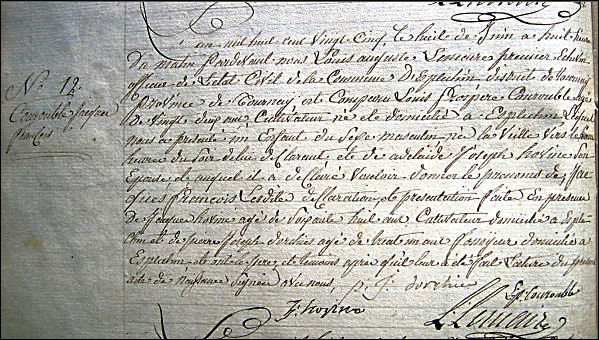 N° 12
Courouble Jacques
françois
L'an mil huit cent vingt cinq, le huit de Juin a huit heure
Du matin Pardevant nous Louis auguste Lemaire premier Echevin
officier de L'etat Civil de la Commune D'Esplechin district de tournay
Province de Tournay, est Comparu Louis Prospere Courouble agé
De vingt deux ans Cultivateur né et domicilié a Esplechin Lequel
nous a presenté un Enfant du Sexe masculin né la Veille vers
heures du Soir de lui declarant, et de adelaide Joseph hovine Son
Epouse et auquel il a declaré Vouloir donner le prenoms de Jac
ques françois Lesdite declaration et presentation faite En presence
de Jacque hovine agé de Soixante huit ans Cultivateur domicilié a Esple
chin et de Pierre Joseph dorchies agé de trente ans domicilié a
Esplechin et ont le Pere et temoins apres qu'il leur a été fait Lecture du present
acte de naissance Signés avec nous
P. J. dorchie
Lp Courouble
J: hovine
L: Lemaire